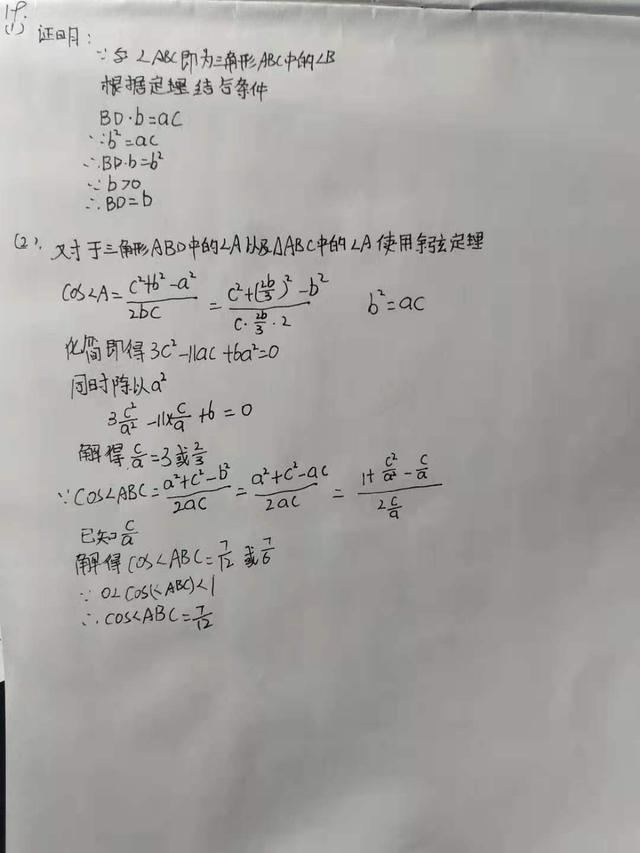 19.
(1) 证明:
∵ ∠ABC即为三角形ABC中的∠B
根据定理结合条件
BD·b=ac
∵b²=ac
∴BD·b=b²
∵b>0
∴BD=b
(2). 对于三角形ABD中的∠A以及△ABC中的∠A使用余弦定理
cos∠A=\frac{c²+b²-a²}{2bc}=\frac{c²+(\frac{2b}{3})²-b²}{c·\frac{2b}{3}·2} b²=ac
化简即得3c²-11ac+6a²=0
同时除以a²
3\frac{c²}{a²}-11×\frac{c}{a}+6=0
解得\frac{c}{a}=3或\frac{2}{3}
∵cos∠ABC=\frac{a²+c²-b²}{2ac}=\frac{a²+c²-ac}{2ac}=\frac{1+\frac{c²}{a²}-\frac{c}{a}}{2\frac{c}{a}}
已知\frac{c}{a}
解得cos∠ABC=\frac{7}{12}或\frac{7}{6}
∵0<cos(∠ABC)<1
∴cos∠ABC=\frac{7}{12}